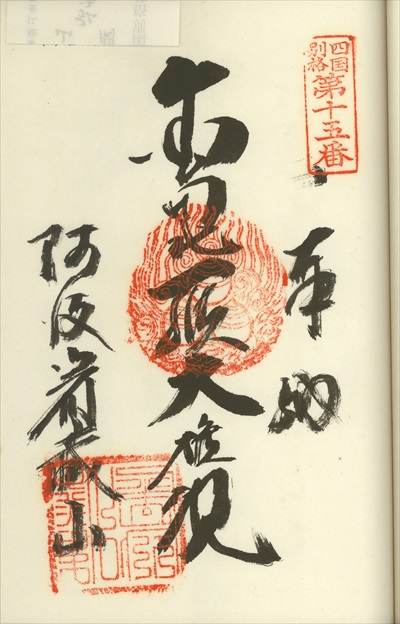 四国
別格
第十五番
奉納
金毘羅大権現
阿波箸蔵山